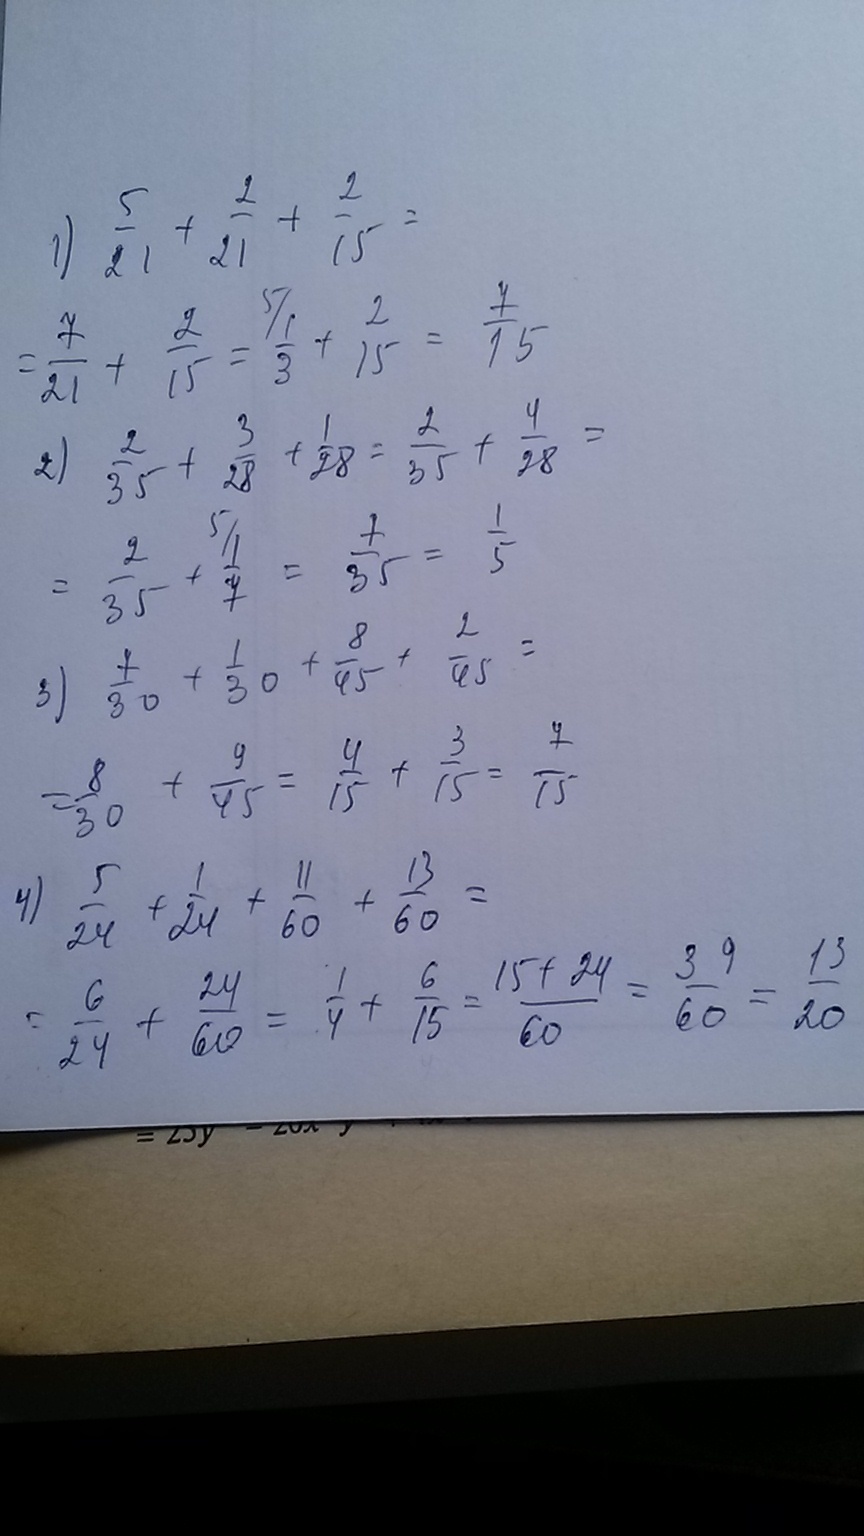 1) 5/21 + 2/21 + 2/15 =
= 7/21 + 2/15 = 5/ 1/3 + 2/15 = 7/15
2) 2/35 + 3/28 + 1/28 = 2/35 + 4/28 =
= 2/35 + 5/ 1/7 = 7/35 = 1/5
3) 7/30 + 1/30 + 8/45 + 2/45 =
= 8/30 + 9/45 = 4/15 + 3/15 = 7/15
4) 5/24 + 1/24 + 11/60 + 13/60 =
= 6/24 + 24/60 = 1/4 + 6/15 = 15+24/60 = 39/60 = 13/20